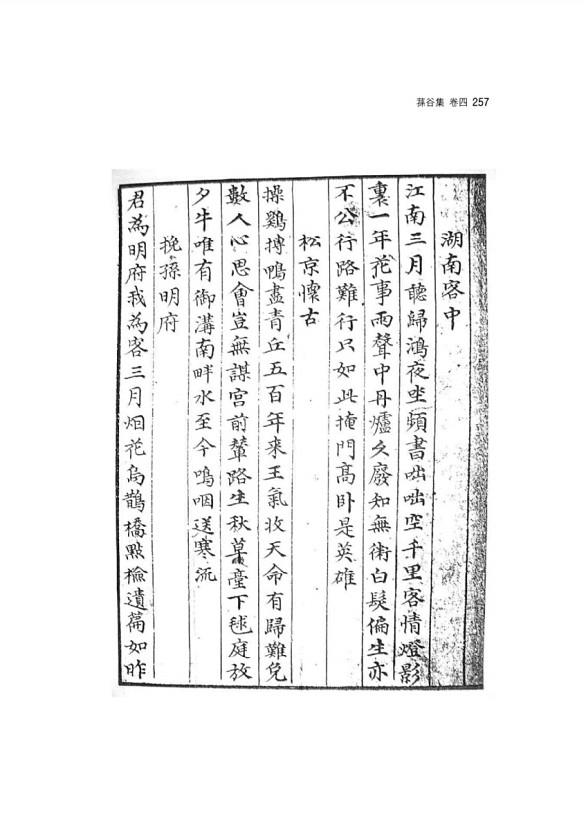 蓀谷集 卷四 257
湖南客中
江南三月聽歸鴻夜坐頻書咄咄空千里客情燈影
裏一年花事雨聲中丹爐久廢知無術白髮偏生亦
不公行路難行只如此掩門高卧是英雄
松京懷古
操鷄搏鴨盡青丘五百年来王氣收天命有歸難免
數人心思會豈無謀宮前輦路生秋草臺下毬庭放
夕牛唯有御溝南畔水至今嗚咽送寒流
挽孫明府
君為明府我為客三月烟花烏鵲橋點檢遺篇如昨